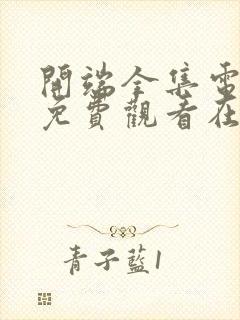 開端全集電
免費觀看在
青子藍1